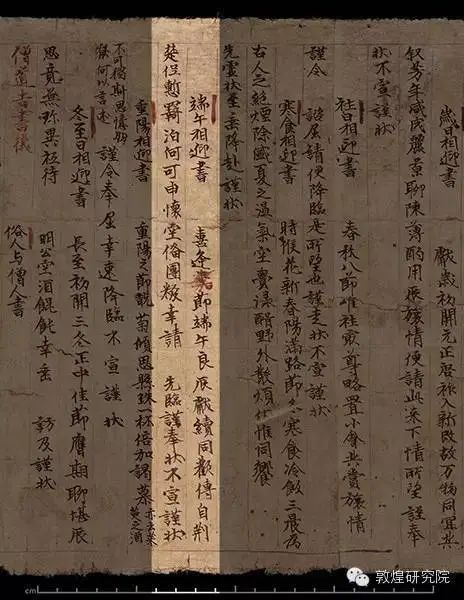 歲日相迎書　獻歲初開元正啓祚入新改故万物同宜共
叙芳年咸成麗景聊陳薄酌用展旅情便請此來下情所望謹奉
狀不宣謹狀
社日相迎書　春秋八節唯社最尊略置小會共賞旅情
謹令　諮屈請便降臨是所望也謹走狀不宣謹狀
寒食相迎書　時候花新春陽滿路節名寒食冷飯三晨為
古人之絶煙除盛夏之温氣空賫渌醑野外散煩伏惟同饗
先靈狀至垂降赴謹狀
端午相迎書　喜逢嘉節端午良辰獻續同歡傳自荆
楚但慙羇泊何可申懷空俻團粽幸請　先臨謹奉狀不宣謹狀
重陽相迎書　重陽之節翫菊傾思一杯倍加謁慕
不可獨斟思憶朋寮何以言述　謹令奉屈幸速降臨不宣謹狀
冬至日相迎書　長至初開三冬正中佳節膺期聊堪展
思竟無珎異祗待　明公空酒餛飩幸垂　訪及謹狀
僧道書書儀　俗人与僧人書
cm
敦煌研究院